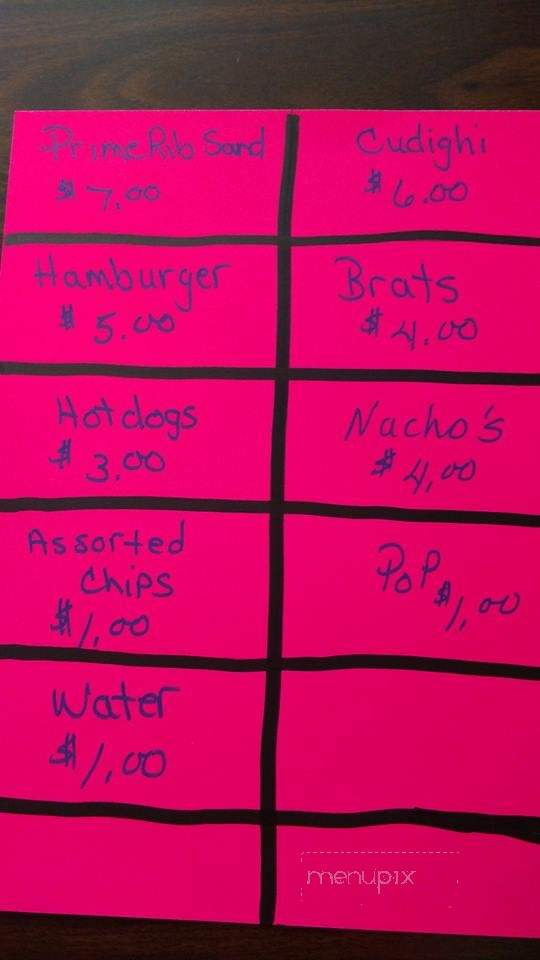 Prime Rib Sand
$7.00
Cudighi
$6.00
Hamburger
$5.00
Brats
$4.00
Hotdogs
$3.00
Nacho's
$4,00
Assorted
Chips
$1,00
POP $1,00
Water
$1,00
menupix